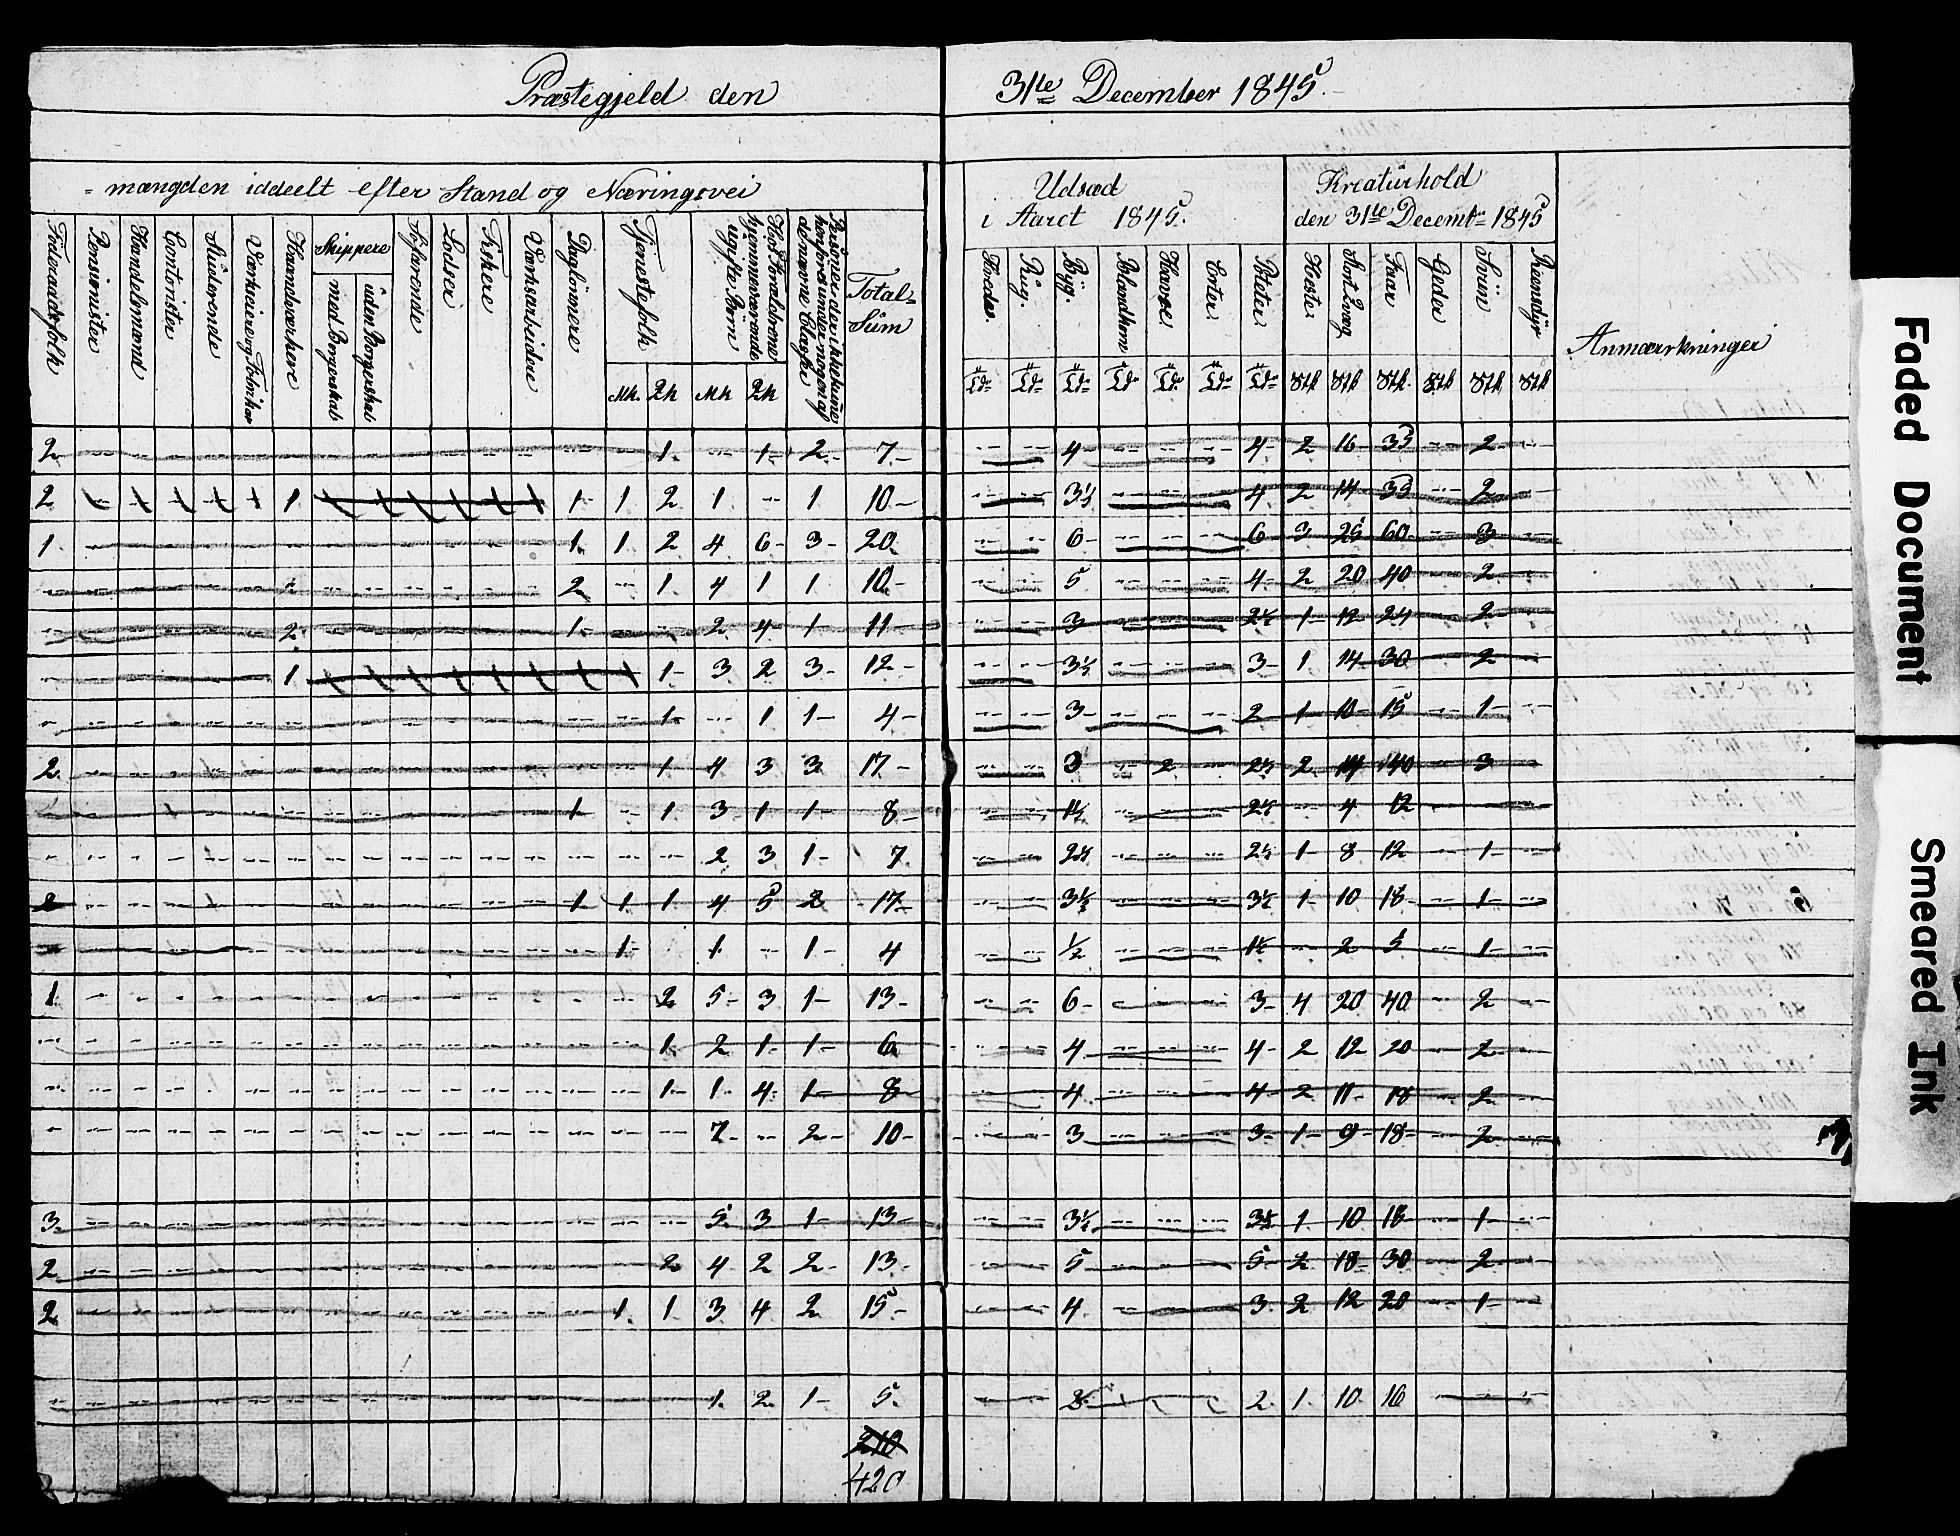 Præstegjeld den 31te December 1845.
= mængden iddeelt efter Stand og Næringsvei
Udsæd i Aaret 1845.
Kreaturhold den 31te Decembr 1845
Anmærkninger
Foderaadsfolk
Pensionister
Handelsmænd
Contorister
Studerende
Værkseiere og Fabrikør
Haandværkere
Skippere
med Borgerskab
uden Borgerskab
Søfarende
Lodser
Fiskere
Værksarbeidere
Dagleiere
Tjenestefolk
Mk. Qk
Hos Forældrene hjemmeværende ugifte Børn
Mk Qk
Personer der ikke kunne henføres under nogen af de nævnte Classer
Total-Sum
Hvede.
Rug.
Byg.
Blandkorn
Havre.
Erter.
Poteter.
Heste.
Stort Qvæg
Faar
Geder
Sviin
Reensdyr
2 1. 1- 2- 7- 4- 4- 2 16 35 2-
2 1 1- 1 2 1 1 10- 3½ 4 2 14 35 2
1. 1. 1 2 4 6- 3- 20. 6- 6 3 25 60 3
2 1 4 1 1 10- 5 4- 2 20 40 2
2 1- 2 4 1- 11- 3 2½ 1- 12 24 2
1 1- 3 2 3- 12- 3½ 3- 1 14 30 2
1- 1 1- 4- 3- 2 1 10 15 1-
2 1 4 3 3 17- 3 2 2½ 2 14 140 3
1 1 3 1 1- 8- 1½ 2½ 4 12
2 3 1- 7. 2½ 2½ 1- 8 12 1-
2 1 1 1 4 5 2 17- 3½ 3½ 1 10 18 1-
1- 1 1- 4 ½ 1½ 2 5 1-
1 2 5- 3 1- 13- 6- 3- 4 20 40 2-
1. 2 1- 1- 6 4 4- 2 12 20 2-
1- 1- 4- 1- 8- 4 4 2 11- 18 2-
7- 2- 10- 3 3- 1- 9- 18- 2-
3. 5. 3 1- 13- 3½ 3½ 1 10 18 1-
2 2 4 2 2- 13- 5 5- 2 18 30 2-
2 1 1 3 4 2 15- 4. 3 2 12 20 1-
1. 2. 1- 5. 2. 1. 10. 16
210
420
Faded Document
Smeared Ink